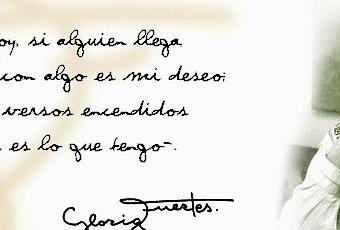 oy, si alguien llega
con algo es mi deseo:
versos encendidos
es lo que tengo-.
Gloria Fuertes.